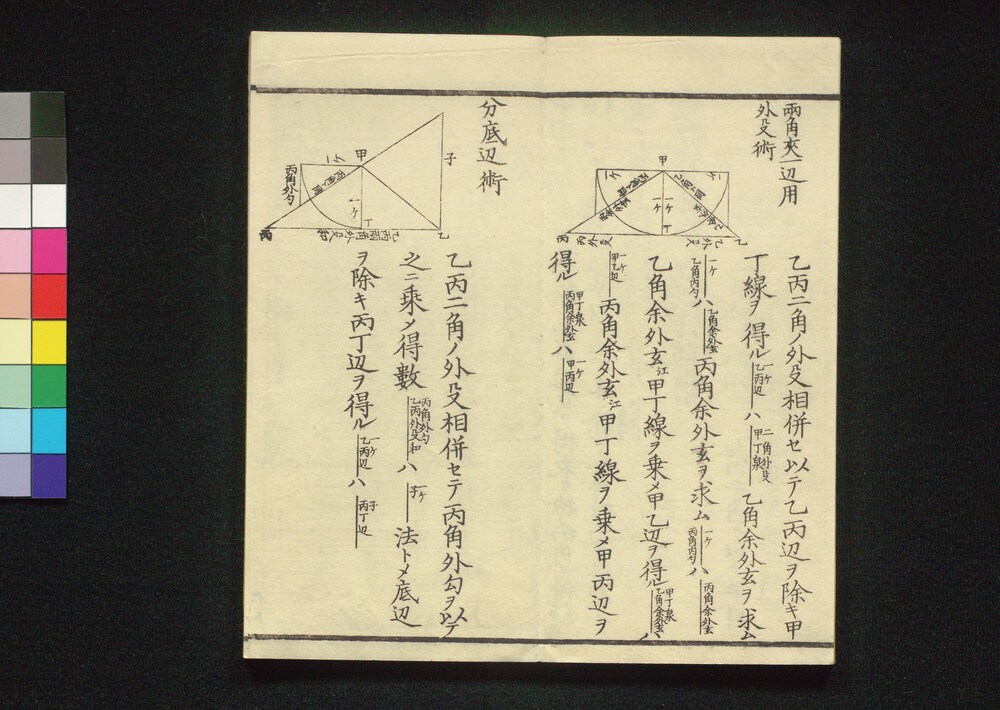 兩角夾一辺用
外殳術
甲
一ケ
一ケ
丁
丙
乙
丙外殳
乙外殳
乙丙二角ノ外殳相併セ以テ乙丙辺ヲ除キ甲
丁線ヲ得ル
一ケ
乙丙辺
ハ
二角外殳
甲丁泉
乙角余外玄ヲ求ム
一ケ
乙角内勺
ハ
乙角余外玄
丙角余外玄ヲ求ム
一ケ
丙角内勺
ハ
丙角余外玄
乙角余外玄江甲丁線ヲ乗メ甲乙辺ヲ得ル
甲丁泉
乙角余外玄
ハ
一ケ
甲乙辺
丙角余外玄江甲丁線ヲ乗メ甲丙辺ヲ
得ル
甲丁泉
丙角余外玄
ハ
一ケ
甲丙辺
分底辺術
子
甲
一ケ
丁
乙
丙
丙角外勺
乙丙兩角外殳和
乙丙二角ノ外殳相併セテ丙角外勾ヲ以テ
之ニ乗メ得數
丙角外勺
乙丙外殳和
ハ
一ケ
子
法トメ底辺
ヲ除キ丙丁辺ヲ得ル
一ケ
乙丙辺
ハ
子
丙丁辺